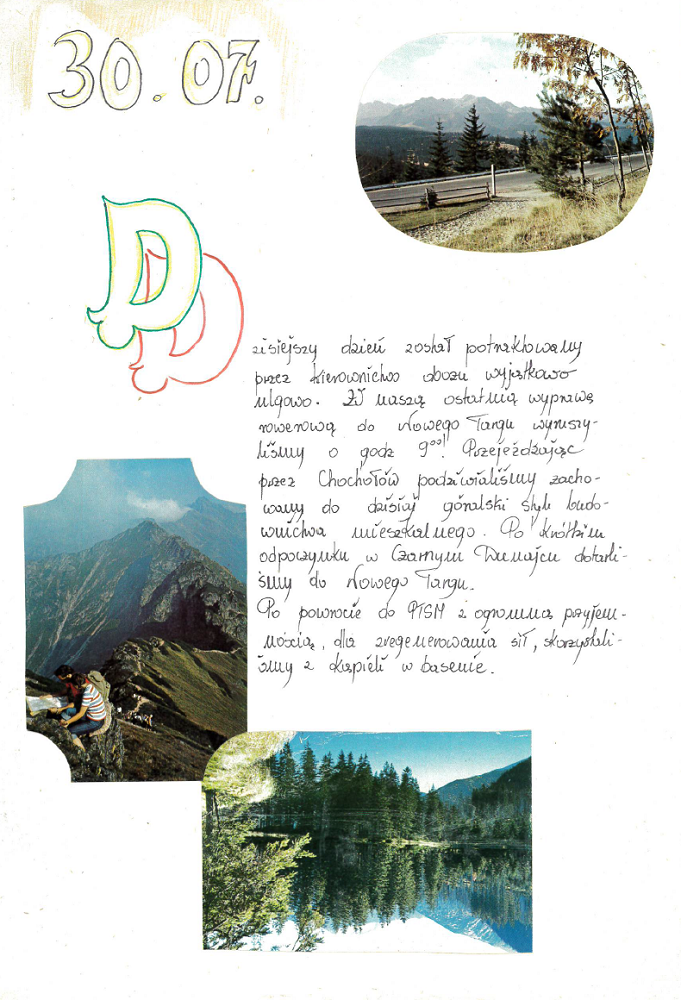 30.07.
Dzisiejszy dzień został potraktowany
przez kierownictwo obozu wyjątkowo
ulgowo. W naszą ostatnią wyprawę
rowerową do Nowego Targu wyruszy-
liśmy o godz 9⁰⁰! Przejeżdżając
przez Chochołów podziwialiśmy zacho-
wany do dzisiaj góralski styl budo-
wnictwa mieszkalnego. Po krótkim
odpoczynku w Czarnym Dunajcu dotarli-
śmy do Nowego Targu.
Po powrocie do PTSM z ogromną przyjem-
nością, dla zregenerowania sił, skorzystali-
śmy z kąpieli w basenie.